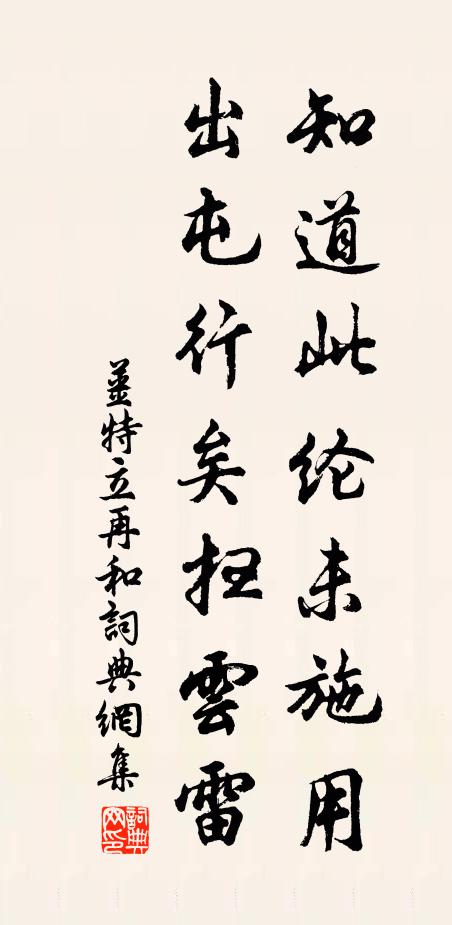 知道此纶未施用
出屯行矣雲雷
薑特立再和詞典網集
詞典
网印